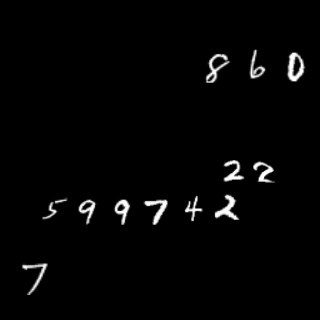 860
22
599742
7